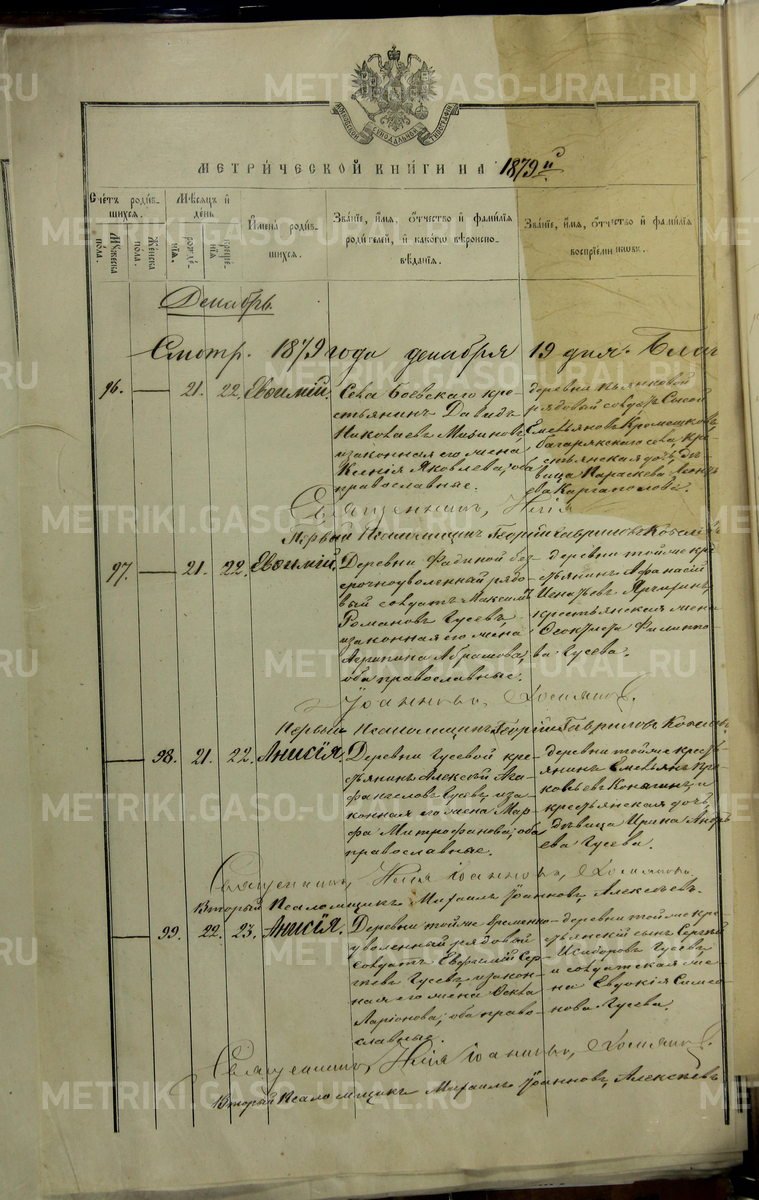 METRIKI.GASO-URAL.RU
МОСКОВСКОЙ СѴНОДАЛЬНОЙ ТИПОГРАФІИ
МЕТРИ́ЧЕСКОЙ КНИ́ГИ НА 1879й
Сче́тъ роди́в-
шихся.
Мꙋ́жеска по́ла.
Же́нска по́ла.
Мѣ́сяцъ и҆ де́нь
рожде́нїѧ.
креще́нїѧ.
И҆мена̀ роди́в-
шихся.
Зва́нїе, и҆́мѧ, ѻ҆́тчество и҆ фами́лїѧ
роди́телей, и҆ како́гѡ вѣроиспо-
вѣ́данїѧ.
Зва́нїе, и҆́мѧ, ѻ҆́тчество и҆ фами́лїѧ
воспрїе́мникѡвъ.
Декабрь
Смотр. 1879 года декабря 19 дня.
96. — 21. 22. Евѳимій.
Села Боевскаго кре-
стьянинъ Давидъ
Николаевъ
и законная его жена
Ксенія Яковлева; оба
православные.
деревни
рядовый солдатъ Сысой
Емельяновъ
багарякскаго села, кре-
стьянская дочь, дѣ-
вица Параскева
Каргаполова.
Священникъ Илія
Первый Псаломщикъ Георгій Гавриловъ
97. — 21. 22. Евѳимій.
Деревни Фадиной без-
срочноуволенный рядо-
вый солдатъ Максимъ
Романовъ Гусевъ
и законная его жена
Агрипина Абрамова;
оба православные.
деревни тойже кре-
стьянинъ Афанасій
Игнатьевъ
крестьянская жена
Ѳеоктиста Филиппо-
ва Гусева.
Іоанновъ,
Первый Псаломщикъ Георгій Гавриловъ
— 98. 21. 22. Анисія.
Деревни Гусевой кре-
стьянинъ Алексѣй Ага-
фангеловъ Гусевъ, и за-
конная его жена Мар-
фа Митрофанова; оба
православные.
деревни тойже кресть-
янинъ Емельянъ Про-
копьевъ и
крестьянская дочь,
дѣвица Ирина Андре-
ева Гусева.
Священникъ, Илія Іоанновъ,
Второй Псаломщикъ Михаилъ Іоанновъ Алексѣевъ.
— 99. 22. 23. Анисія.
Деревни тойже временно-
уволенный рядовой
солдатъ Евфимій Сер-
гѣевъ Гусевъ, и закон-
ная его жена Ѳекла
Ларіонова; оба право-
славные.
деревни тойже кре-
стьянскій сынъ Сергій
Исидоровъ Гусевъ
и солдатская же-
на Евдокія Симео-
нова Гусева.
Священникъ, Илія Іоанновъ,
Второй Псаломщикъ Михаилъ Іоанновъ Алексѣевъ